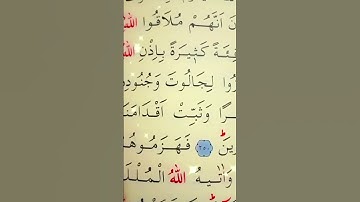 نَ اَنَّهُمْ مُلَاقُوا اللّٰهِ
فِئَةً كَثٖيرَةً بِاِذْنِ اللّٰهِ
زُوا لِجَالُوتَ وَجُنُودِهٖ
رًا وَثَبِّتْ اَقْدَامَنَا
رٖينَ ﴿٢٥٠﴾ فَهَزَمُوهُمْ
وَاٰتٰيهُ اللّٰهُ الْمُلْكَ